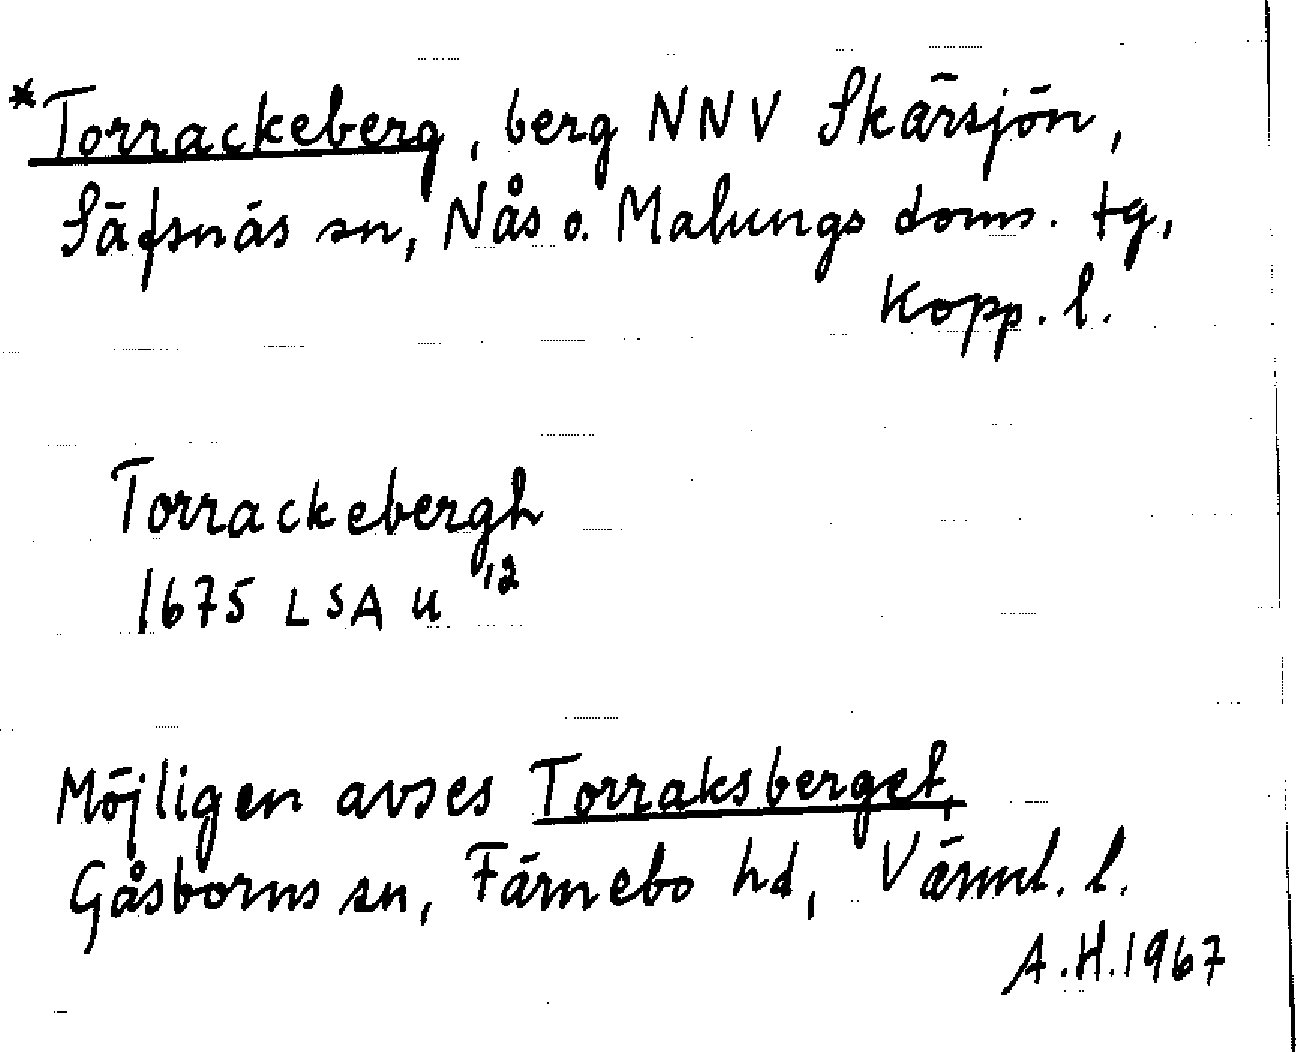 *Torrackeberg, berg NNV Skärsjön,
Säfsnäs sn, Nås o. Malungs doms. tg,
Kopp. l.
Torrackebergh
1675 LSA U 12
Möjligen avses Torraksberget,
Gåsborns sn, Färnebo hd, Värml. l.
A.H. 1967